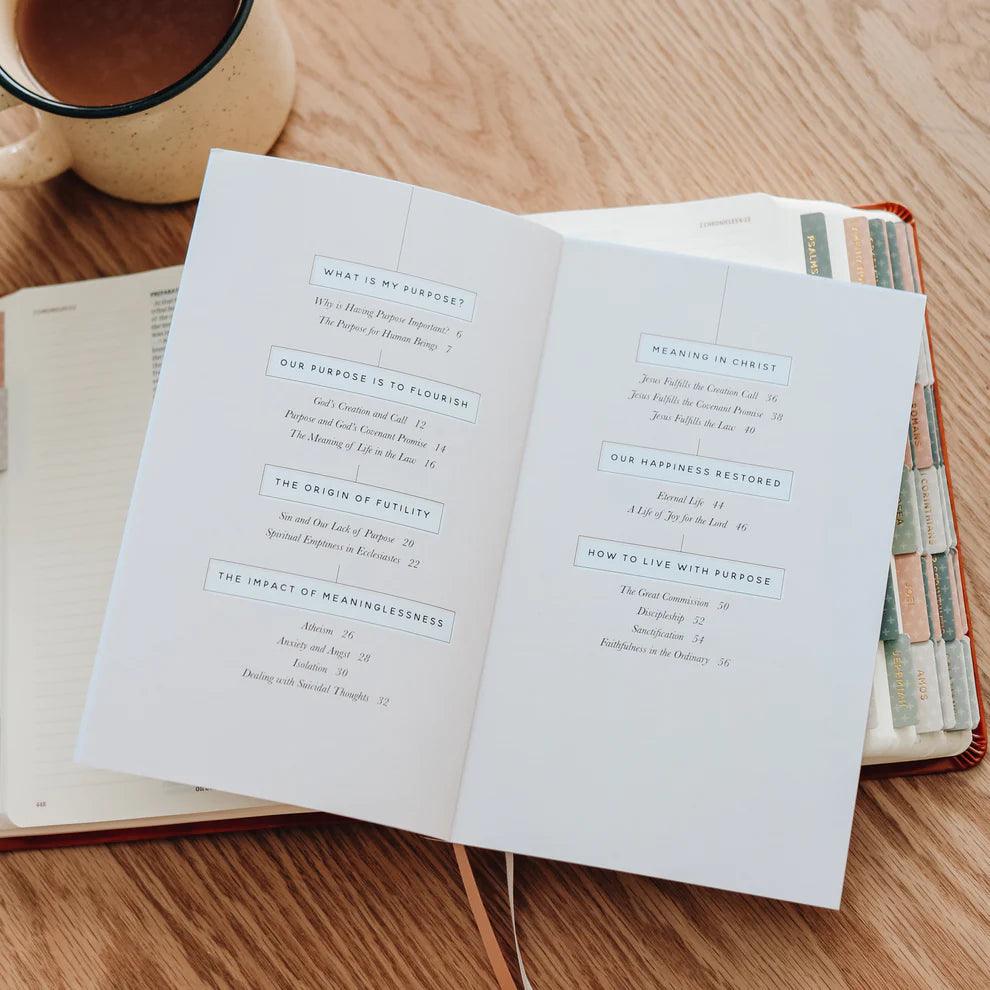 WHAT IS MY PURPOSE?
Why is Having Purpose Important? 6
The Purpose for Human Beings 7
OUR PURPOSE IS TO FLOURISH
God's Creation and Call 12
Purpose and God's Covenant Promise 14
The Meaning of Life in the Law 16
THE ORIGIN OF FUTILITY
Sin and Our Lack of Purpose 20
Spiritual Emptiness in Ecclesiastes 22
THE IMPACT OF MEANINGLESSNESS
Atheism 26
Anxiety and Angst 28
Isolation 30
Dealing with Suicidal Thoughts 32
MEANING IN CHRIST
Jesus Fulfills the Creation Call 36
Jesus Fulfills the Covenant Promise 38
Jesus Fulfills the Law 40
OUR HAPPINESS RESTORED
Eternal Life 44
A Life of Joy for the Lord 46
HOW TO LIVE WITH PURPOSE
The Great Commission 50
Discipleship 52
Sanctification 54
Faithfulness in the Ordinary 56
PSALMS
ROMANS
CORINTHIANS
JOEL
JEREMIAH
AMOS
448